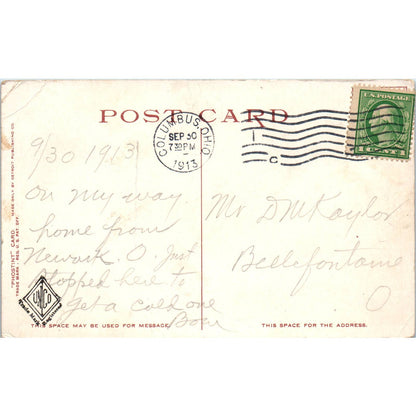 POST CARD
COLUMBUS, OHIO
SEP 30
7 30 PM
1913
U.S. POSTAGE
9/30 1913
On my way
home from
Newark. O. Just
stopped here to
get a cold one
Mr D McKaylor
Bellefontaine
O
"PHOSTINT" CARD. MADE ONLY BY DETROIT PUBLISHING CO.
TRADE MARK REG. U.S. PAT. OFF.
THIS SPACE MAY BE USED FOR MESSAGE.
THIS SPACE IS FOR THE ADDRESS.